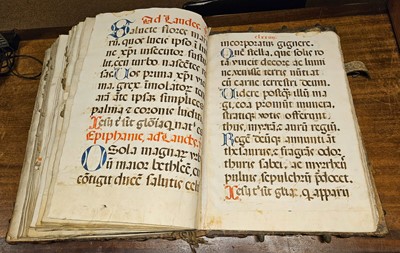 Ad Laudes.
Saluete flores mar
rũ, quos lucis ipso i
ne xp̃i insecutor sust
lit, ceu turbo nascẽtes
Vos prima xp̃i v
ma, grex ĩmolator
aram ante ipsam simplices
palma & coronis luditis
Iesu t' sit gl'ia q
Epiphanie, ad Laudes
O sola magnarum vrb
ũ maior bethleem, c
cõtigit ducẽ salutis cele
incorporatum gignere.
Quẽ stella, que solis ro
tã vincit decore ac lumi
ne, venisse terris nũtiat
cũ carne terrestri deum.
Videre postq̃ illũ ma
gi, eoa promũt munera,
stratiq; votis offerunt
thus, myrrã & aurũ regiũ.
Regẽ deũq; annũti ãt
thesaurus, & fragrãs odor
thuris sabei, ac myrrheus
puluis sepulchrũ p̃docet.
Iesu t' sit gl'ia, q apparu